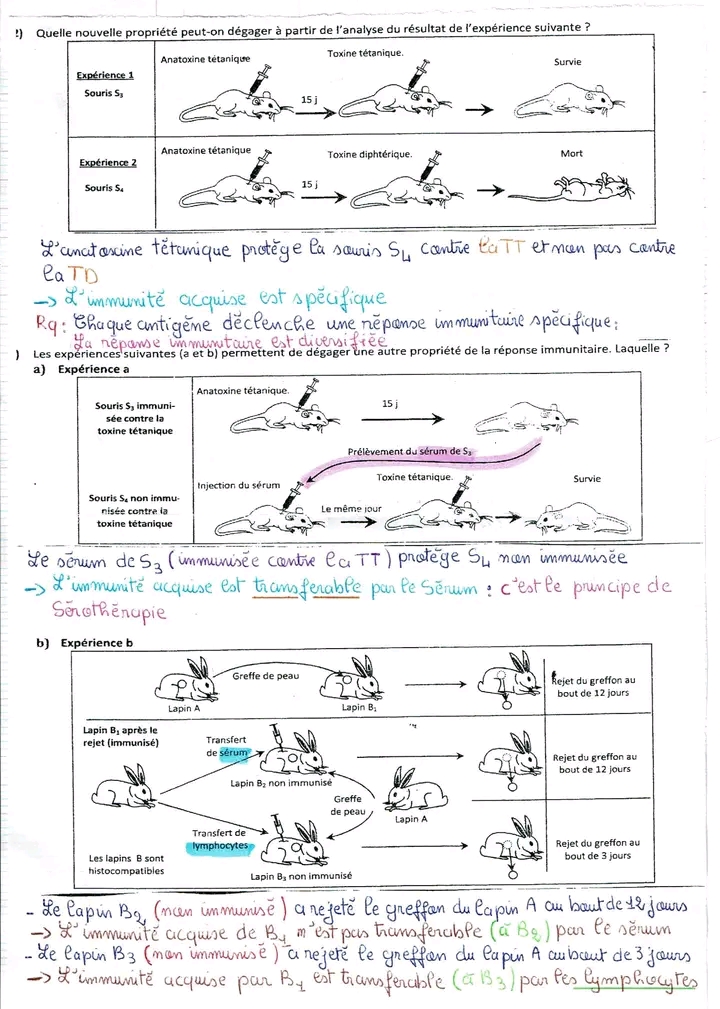 !) Quelle nouvelle propriété peut-on dégager à partir de l'analyse du résultat de l'expérience suivante ?
Expérience 1
Souris S₃
Anatoxine tétanique
15 j
Toxine tétanique.
Survie
Expérience 2
Souris S₄
Anatoxine tétanique
15 j
Toxine diphtérique.
Mort
L'anatoxine tétanique protège la souris S4 contre la TT et non pas contre
la TD
→ L'immunité acquise est spécifique
Rq : Chaque antigène déclenche une réponse immunitaire spécifique ;
La réponse immunitaire est diversifiée
) Les expériences suivantes (a et b) permettent de dégager une autre propriété de la réponse immunitaire. Laquelle ?
a) Expérience a
Souris S₃ immuni-
sée contre la
toxine tétanique
Anatoxine tétanique.
15 j
Prélèvement du sérum de S₃
Souris S₄ non immu-
nisée contre la
toxine tétanique
Injection du sérum
Le même jour
Toxine tétanique.
Survie
Le sérum de S3 (immunisée contre la TT) protège S4 non immunisée
→ L'immunité acquise est transferable par le Sérum : c'est le principe de
Sérothérapie
b) Expérience b
Greffe de peau
Lapin A
Lapin B₁
Rejet du greffon au
bout de 12 jours
Lapin B₁ après le
rejet (immunisé)
Transfert
de sérum
Lapin B₂ non immunisé
Rejet du greffon au
bout de 12 jours
Greffe
de peau
Lapin A
Transfert de
lymphocytes
Les lapins B sont
histocompatibles
Lapin B₃ non immunisé
Rejet du greffon au
bout de 3 jours
- Le lapin B2 (non immunisé) a rejeté le greffon du lapin A au bout de 12 jours
→ L'immunité acquise de B1 n'est pas transferable (à B2) par le sérum
- Le lapin B3 (non immunisé) a rejeté le greffon du lapin A au bout de 3 jours
→ L'immunité acquise par B1 est transferable (à B3) par les lymphocytes